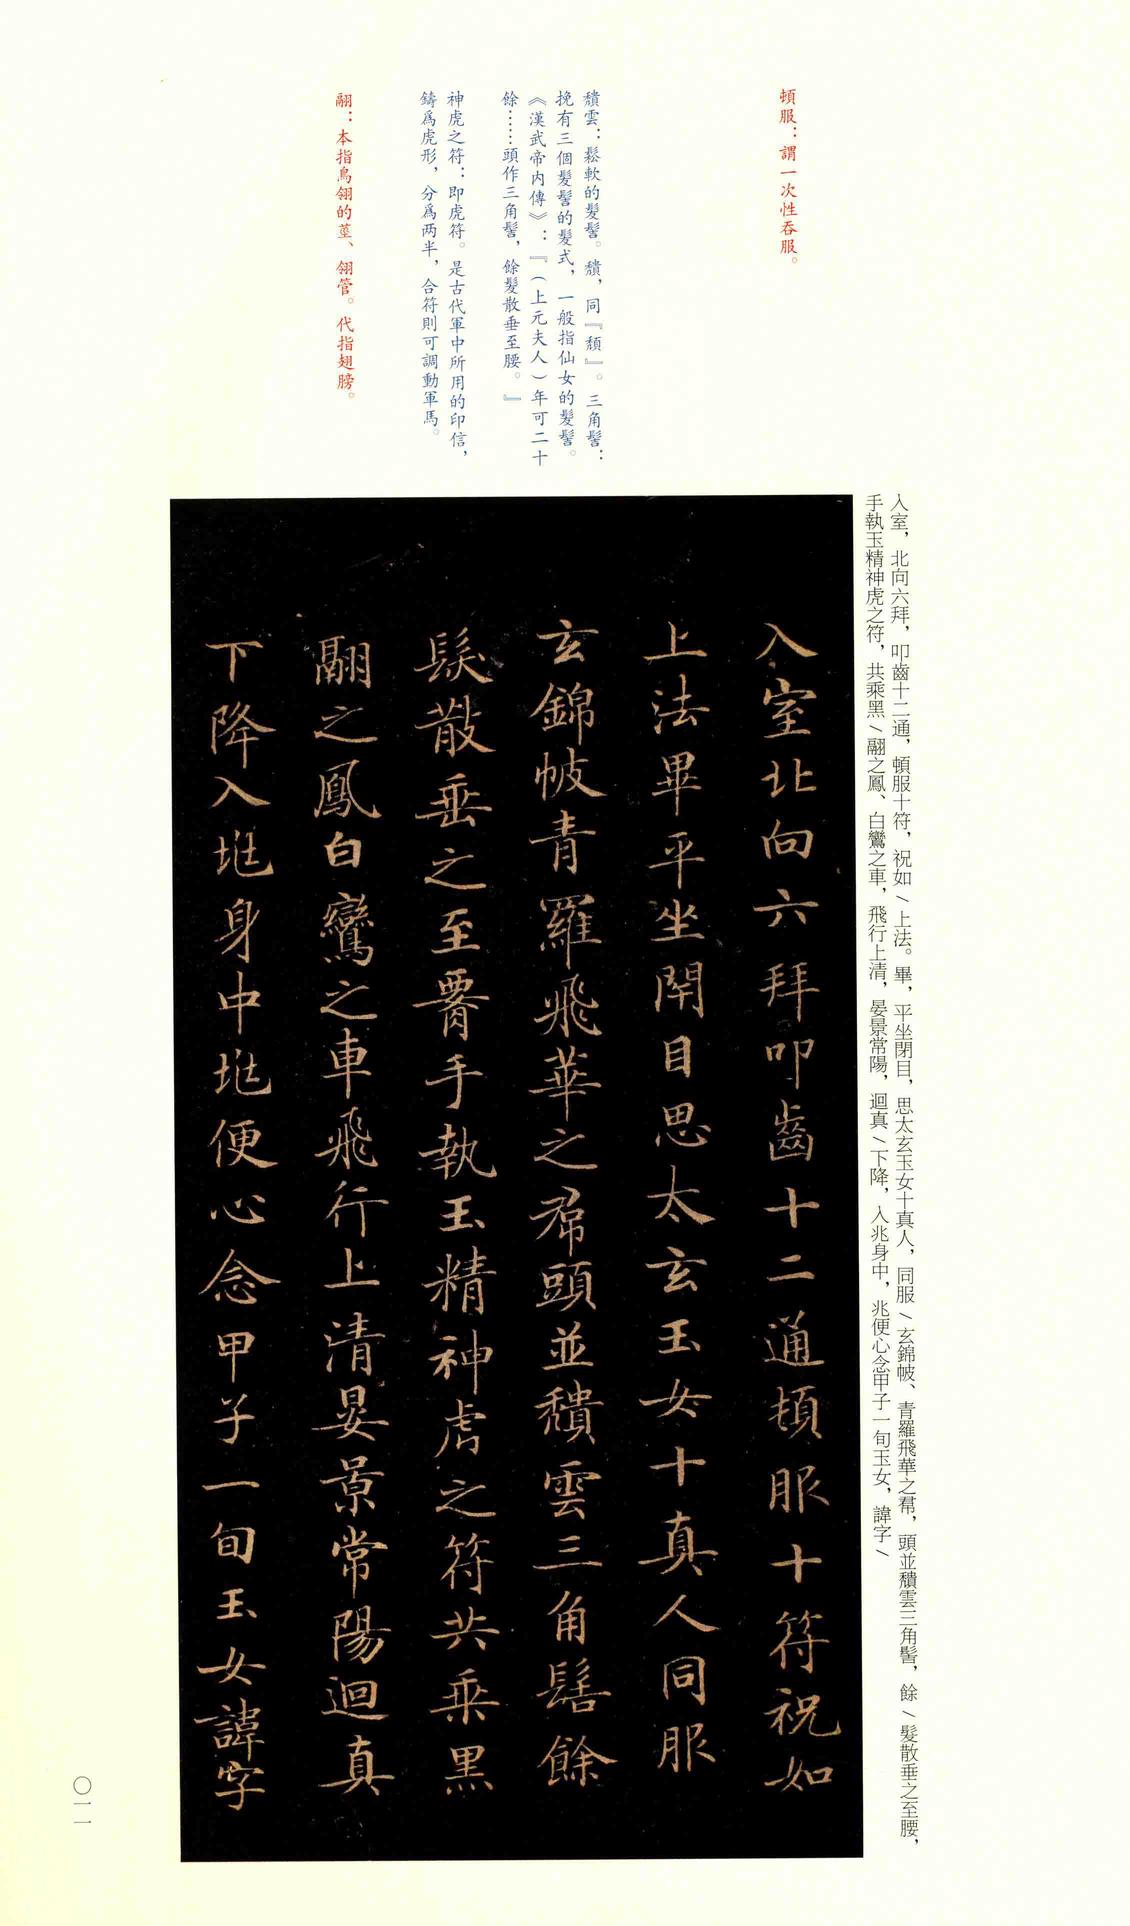 頓服：謂一次性吞服。
䫋雲：鬆軟的髮髻。䫋，同『頹』。三角髻：
挽有三個髮髻的髮式，一般指仙女的髮髻。
《漢武帝内傳》：『（上元夫人）年可二十
餘……頭作三角髻，餘髮散垂至腰。』
神虎之符：即虎符。是古代軍中所用的印信，
鑄爲虎形，分爲两半，合符則可調動軍馬。
翮：本指鳥翎的莖、翎管。代指翅膀。
入室，北向六拜，叩齒十二通，頓服十符，祝如\上法。畢，平坐閉目，思太玄玉女十真人，同服\玄錦帔、青羅飛華之帬，頭並䫋雲三角髻，餘\髮散垂之至腰，
手執玉精神虎之符，共乘黑\翮之鳳、白鸞之車，飛行上清，晏景常陽，迴真\下降，入兆身中，兆便心念甲子一旬玉女，諱字\
入室北向六拜叩齒十二通頓服十符祝如
上法畢平坐閇目思太玄玉女十真人同服
玄錦帔青羅飛華之帬頭並䫋雲三角髻餘
髮散垂之至膋手執玉精神虎之符共乘黑
翮之鳳白鸞之車飛行上清晏景常陽迴真
下降入兆身中兆便心念甲子一旬玉女諱字
〇一一